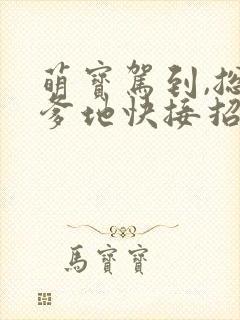 萌寶駕到,總
爹地快接招
馬寶寶